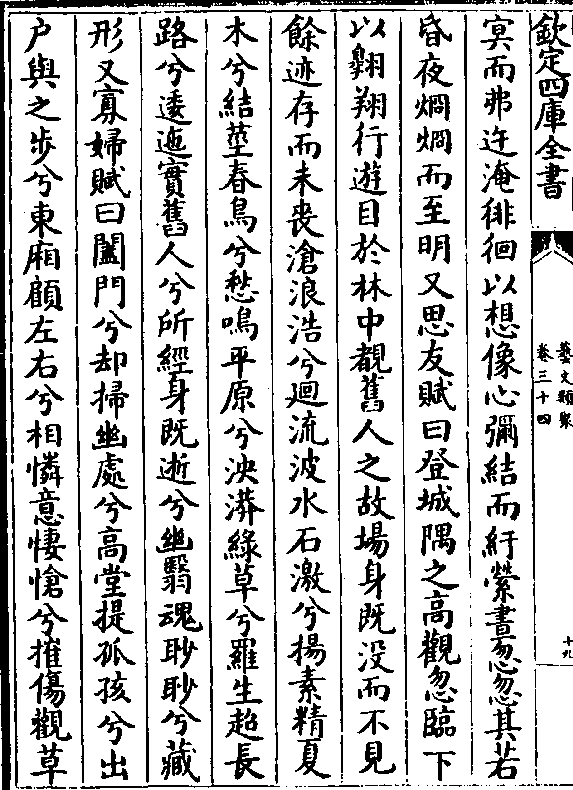 欽定四庫全書
藝文類聚
卷三十四
十九
冥而弗迕淹徘徊以想像心彌結而紆縈晝忽忽其若
昏夜烱烱而至明又思友賦曰登城隅之高觀忽臨下
以翱翔行遊目於林中覩舊人之故場身既没而不見
餘迹存而未喪滄浪浩兮迴流波水石激兮揚素精夏
木兮結莖春鳥兮愁鳴平原兮泱漭綠草兮羅生超長
路兮逶迤實舊人兮所經身既逝兮幽翳魂眇眇兮藏
形又寡婦賦曰闔門兮却掃幽處兮高堂提孤孩兮出
户與之步兮東廂顧左右兮相憐意悽愴兮摧傷觀草